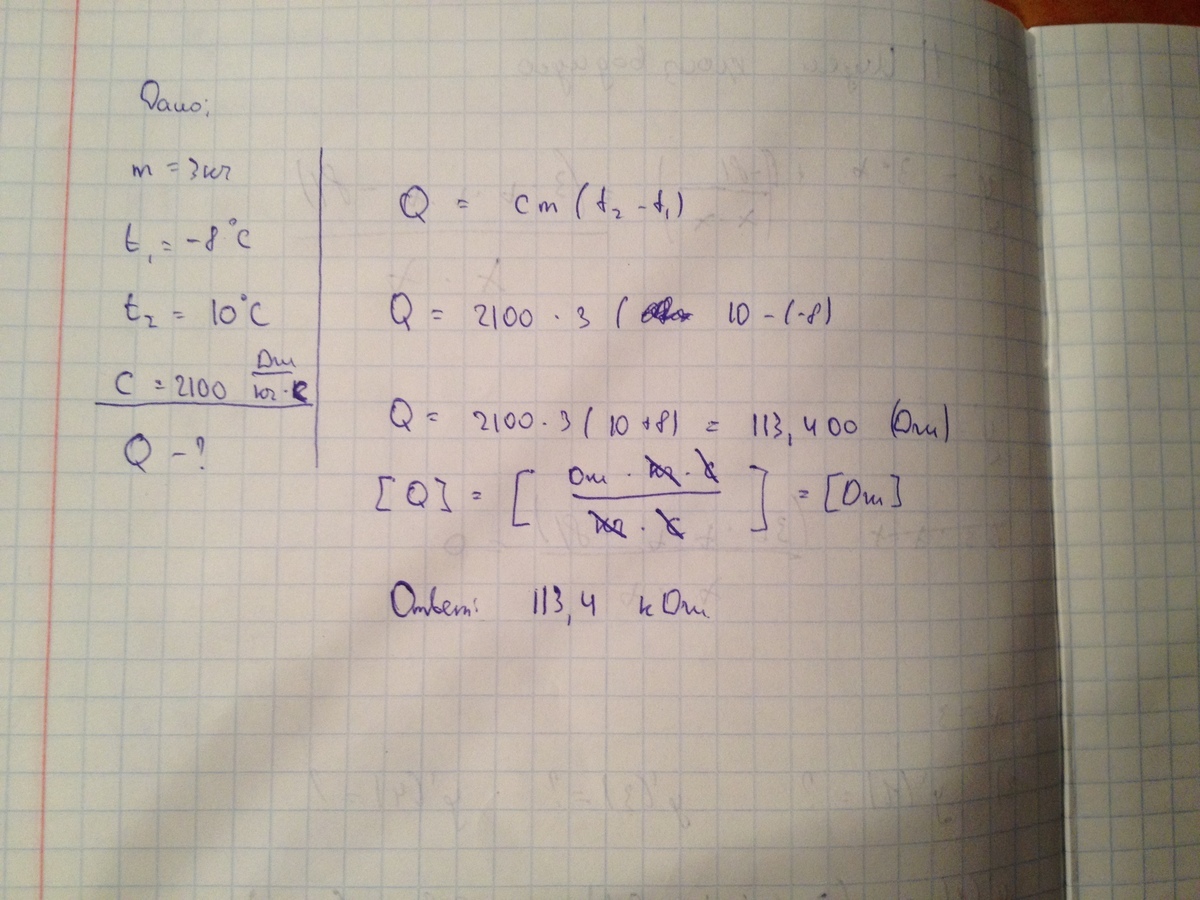 Дано:
m = 3кг
t₁ = -8°C
t₂ = 10°C
C = 2100 Дж/кг·К
Q - ?
Q = cm(t₂ - t₁)
Q = 2100 · 3 ( 10 - (-8)
Q = 2100 · 3 ( 10 + 8) = 113,400 (Дж)
[Q] = [Дж · кг · К / кг · К] = [Дж]
Ответ: 113,4 кДж